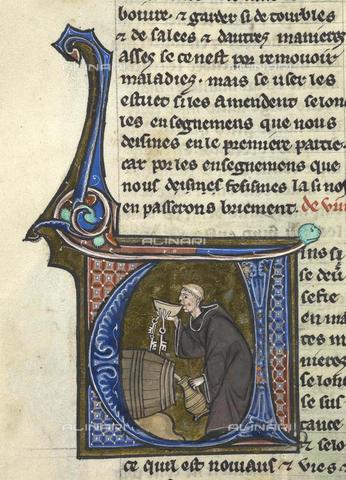 boivre · ⁊ garder si de tourbles
⁊ de salees ⁊ dautres manieres
asses se ce nest por remouvoir
maladies · mais se user les
estuet si les amendent selonc
les ensegnemens que nous
desimes en le premiere partie ·
car por les ensegnemens que
nous desimes
en passerons briement · de vin
ins si
se deu
sefie
en ma
tres m
nieres
se lonc
se sus
tance
⁊ selo
ce quil est noviaus ⁊ vies ·
ALINARI
ALINARI
ALINARI
ALINARI